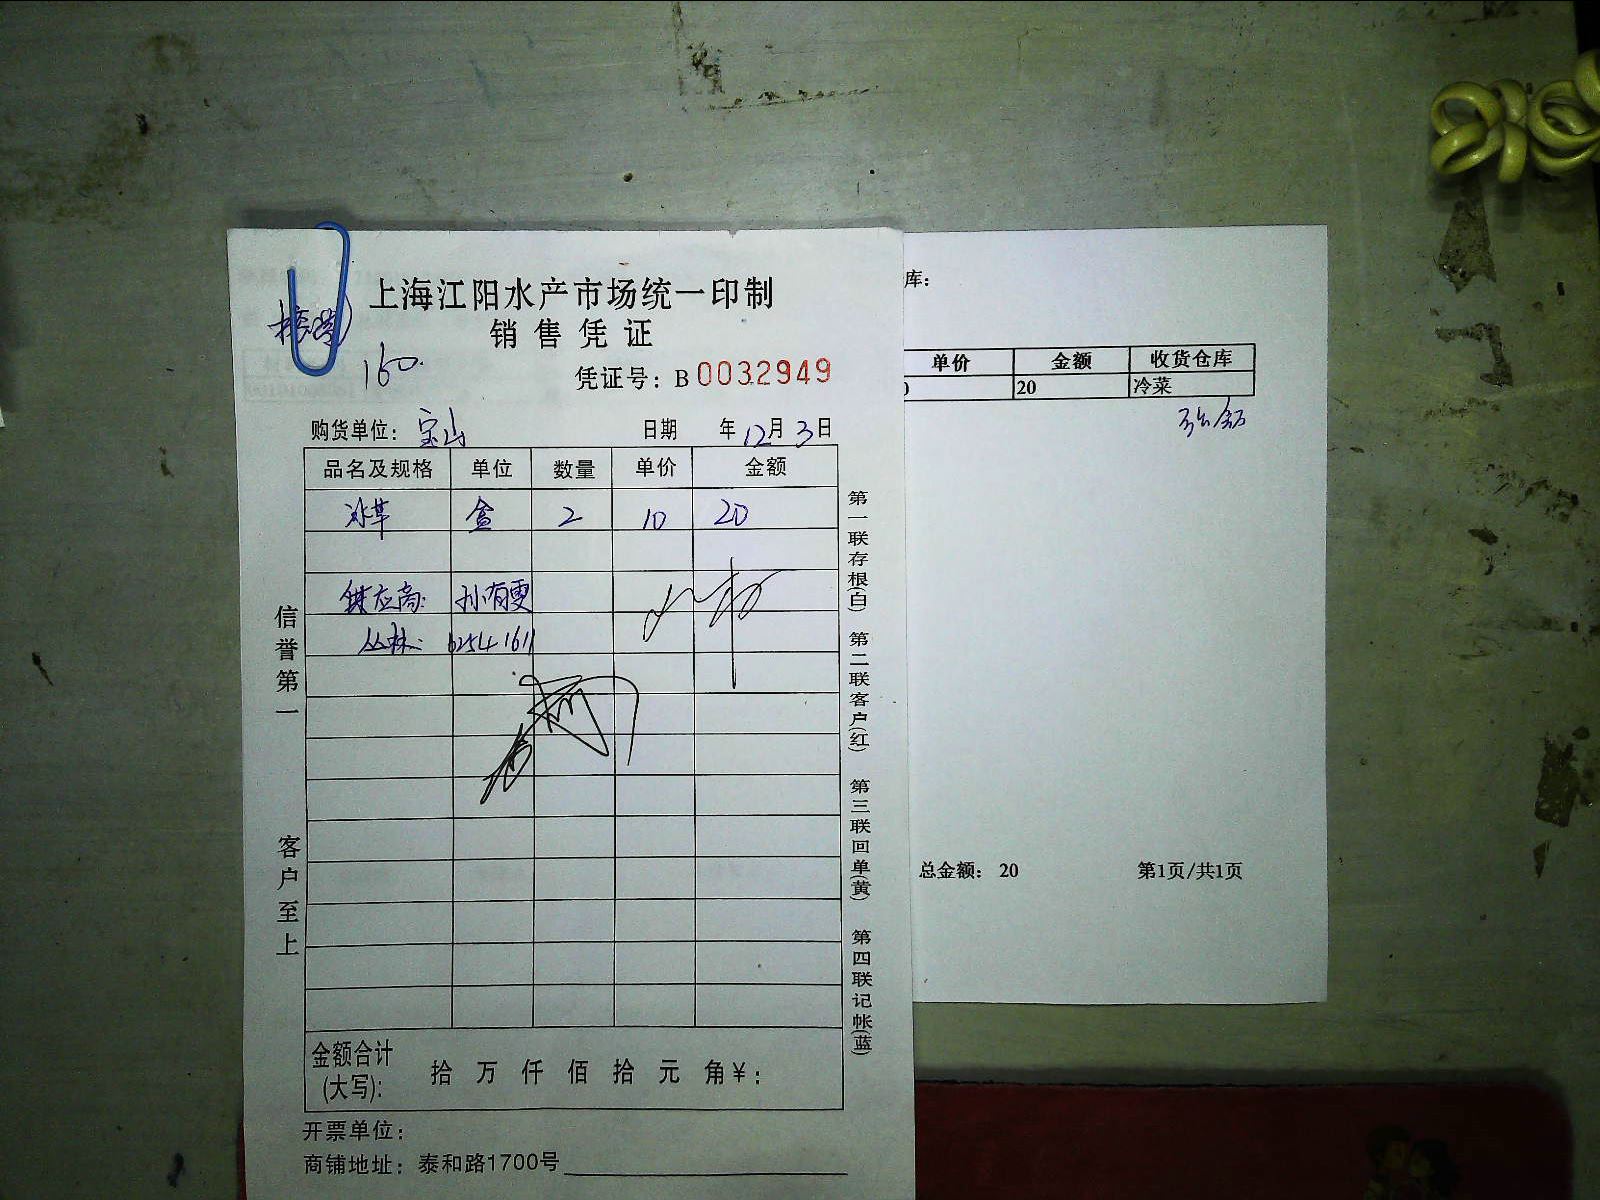 上海江阳水产市场统一印制
销售凭证
160.
凭证号：B 0032949
购货单位：宝山 日期 年12月3日
品名及规格 单位 数量 单价 金额
冰草 盒 2 10 20
供应商: 孙有雯
丛林: 62541611
信誉第一
客户至上
第一联存根(白) 第二联客户(红) 第三联回单(黄) 第四联记帐(蓝)
金额合计
(大写): 拾 万 仟 佰 拾 元 角¥：
开票单位：
商铺地址：泰和路1700号
库:
单价 金额 收货仓库
0 20 冷菜
总金额： 20 第1页/共1页